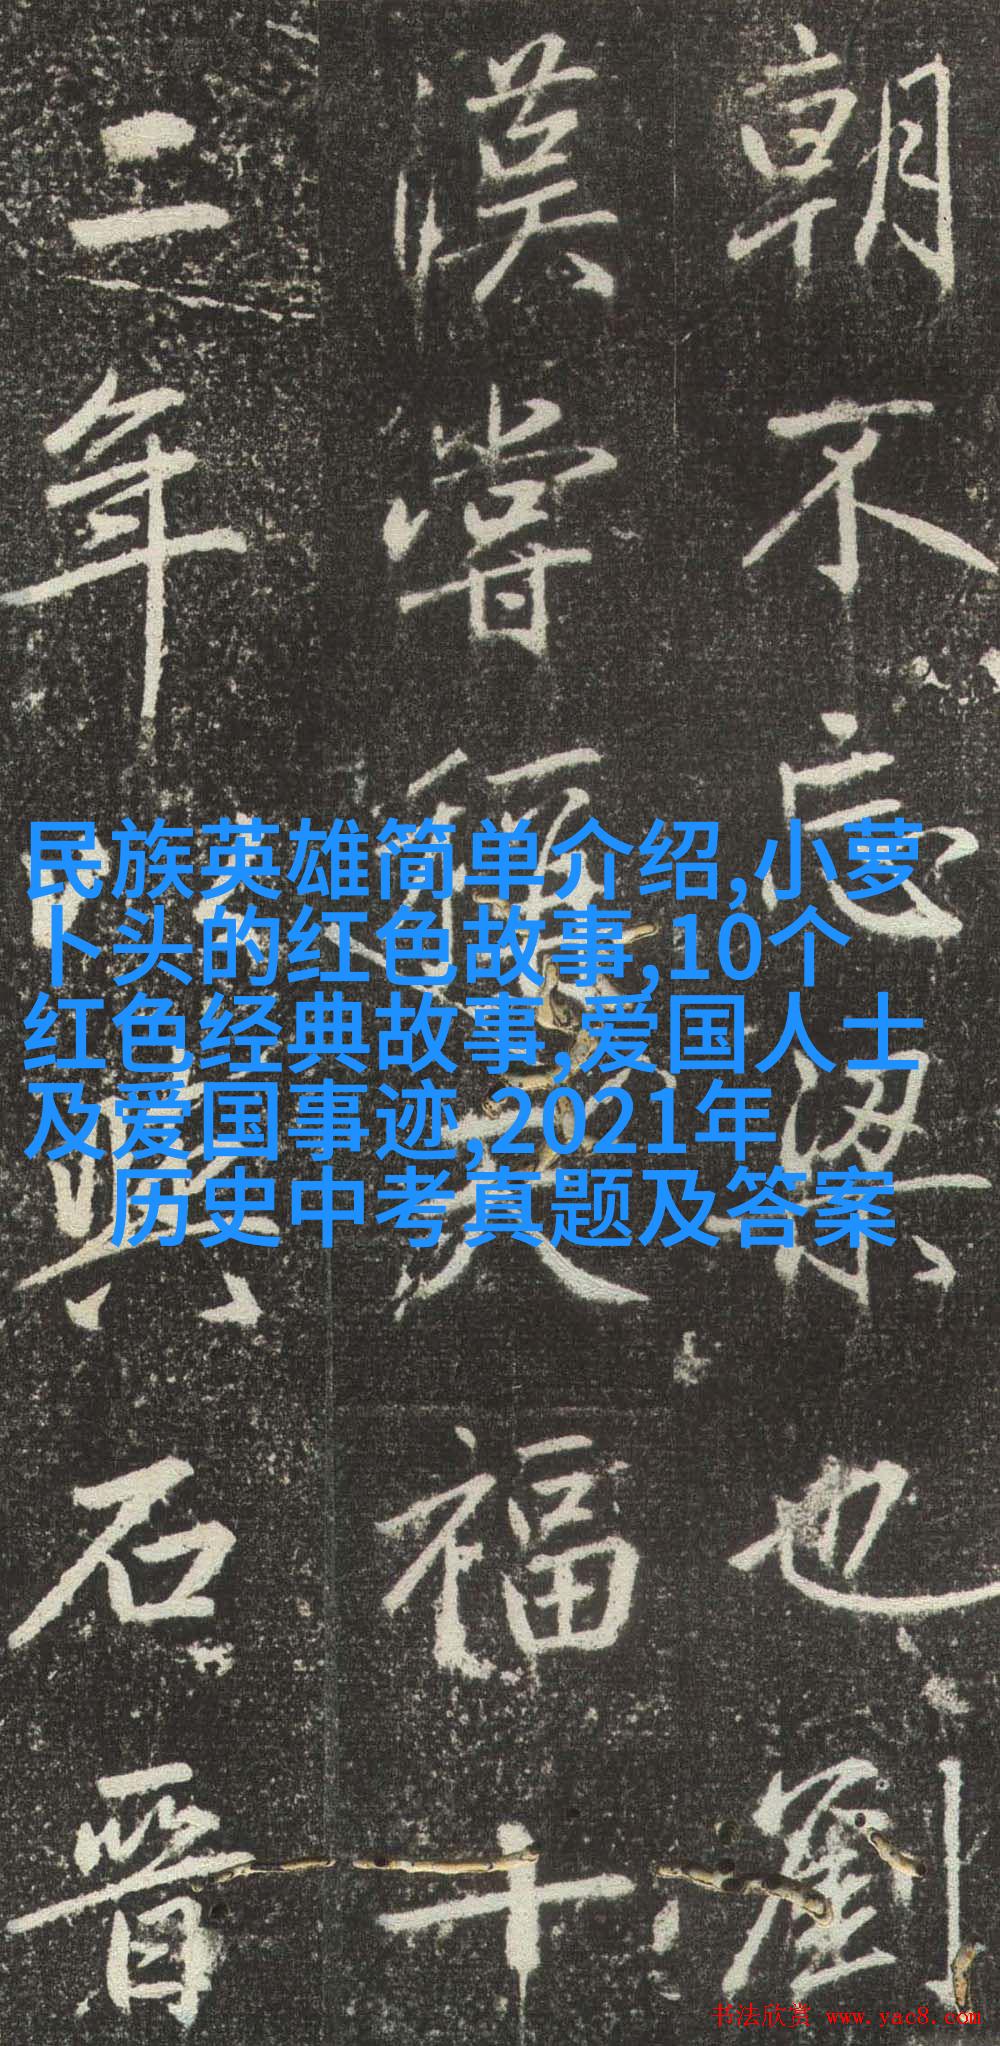 民族英雄简单介绍,小萝
卜头的红色故事,10个
红色经典故事,爱国人士
及爱国事迹,2021年
历史中考真题及答案
朝不忘梁也劉
漢嘗天福十
二年與石晉
书法欣赏 www.yac8.com